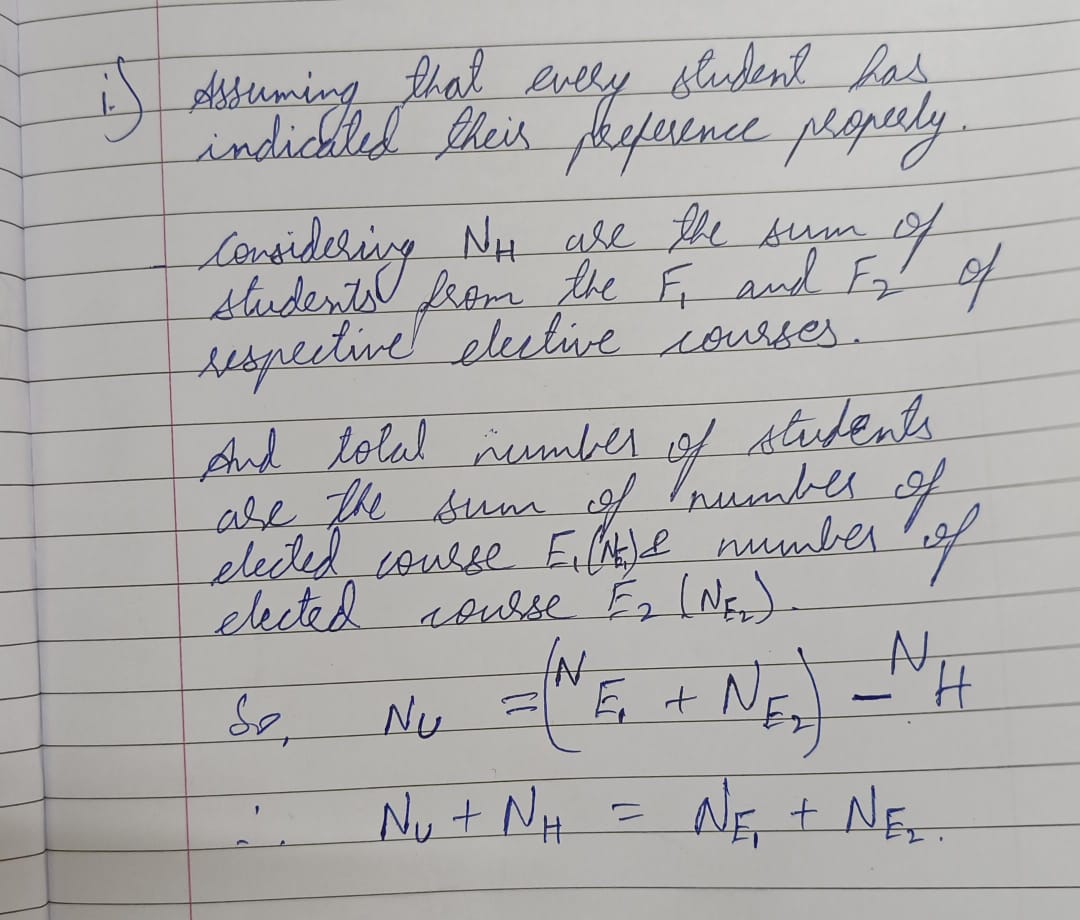 i.) Assuming that every student has
indicated their preference properly.
Considering N_H are the sum of
students from the F_1 and F_2 of
respective elective courses.
And total number of students
are the sum of number of
elected course E_1 (N_E_1) & number of
elected course E_2 (N_E_2).
So, N_U = (N_E_1 + N_E_2) - N_H
∴ N_U + N_H = N_E_1 + N_E_2.